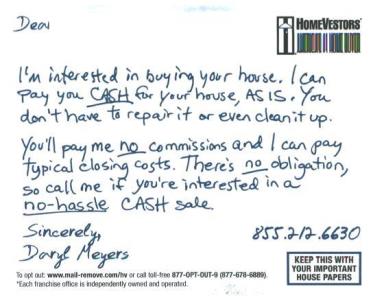 Dear
HOMEVESTORS
I'm interested in buying your house. I can
pay you CASH for your house, AS IS. You
don't have to repair it or even clean it up.
You'll pay me no commissions and I can pay
typical closing costs. There's no obligation,
so call me if you're interested in a
no-hassle CASH sale.
Sincerely,
Daryl Meyers
855.212.6630
KEEP THIS WITH
YOUR IMPORTANT
HOUSE PAPERS
To opt out: www.mail-remove.com/hv or call toll-free 877-OPT-OUT-9 (877-678-6889).
*Each franchise office is independently owned and operated.